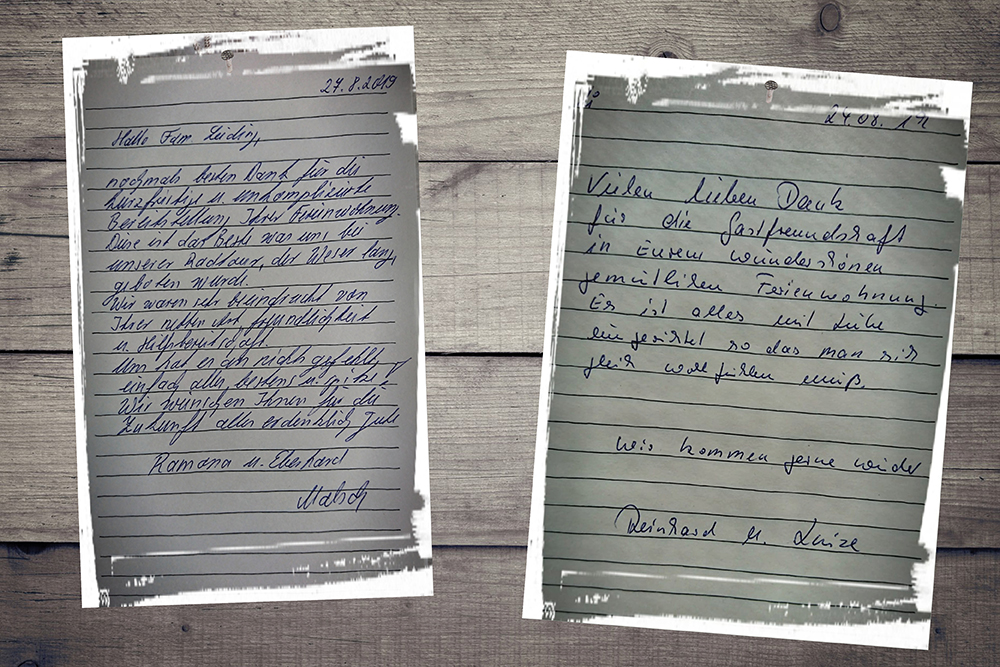 27.8.2019
Hallo Fam. Leiding,
nochmals besten Dank für die
kurzfristige u. unkomplizierte
Bereitstellung Ihrer Ferienwohnung.
Diese ist das Beste was uns bei
unserer Radtour, der Weser lang,
geboten wurde.
Wir waren sehr beeindruckt von
Ihrer netten Art, Freundlichkeit
u. Hilfsbereitschaft.
Uns hat es an nichts gefehlt,
einfach alles bestens u. spitze!
Wir wünschen Ihnen für die
Zukunft alles erdenklich Gute
Ramona u. Eberhard
24.08.
Vielen lieben Dank
für die Gastfreundschaft
in Eurem wunderschönen
gemütlichen Ferienwohnung.
Es ist alles mit Liebe
eingerichtet so das man sich
gleich wohl fühlen muß.
wir kommen gerne wieder
Reinhard u. Luize